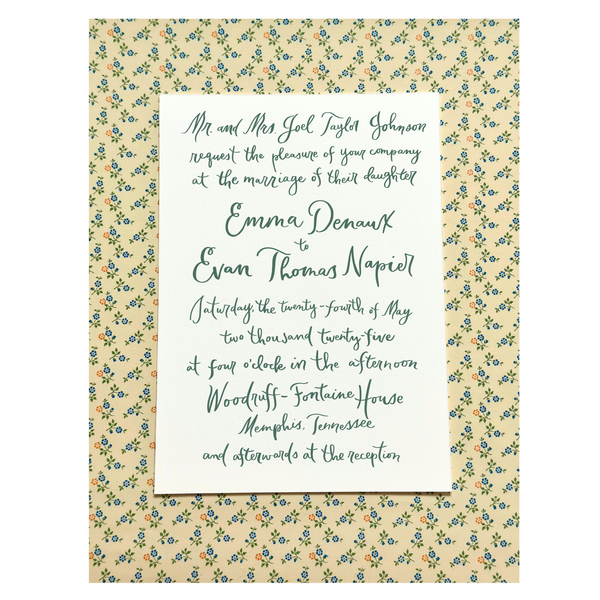 Mr. and Mrs. Joel Taylor Johnson
request the pleasure of your company
at the marriage of their daughter
Emma Denaux
to
Evan Thomas Napier
Saturday, the twenty-fourth of May
two thousand twenty-five
at four o'clock in the afternoon
Woodruff-Fontaine House
Memphis, Tennessee
and afterwards at the reception